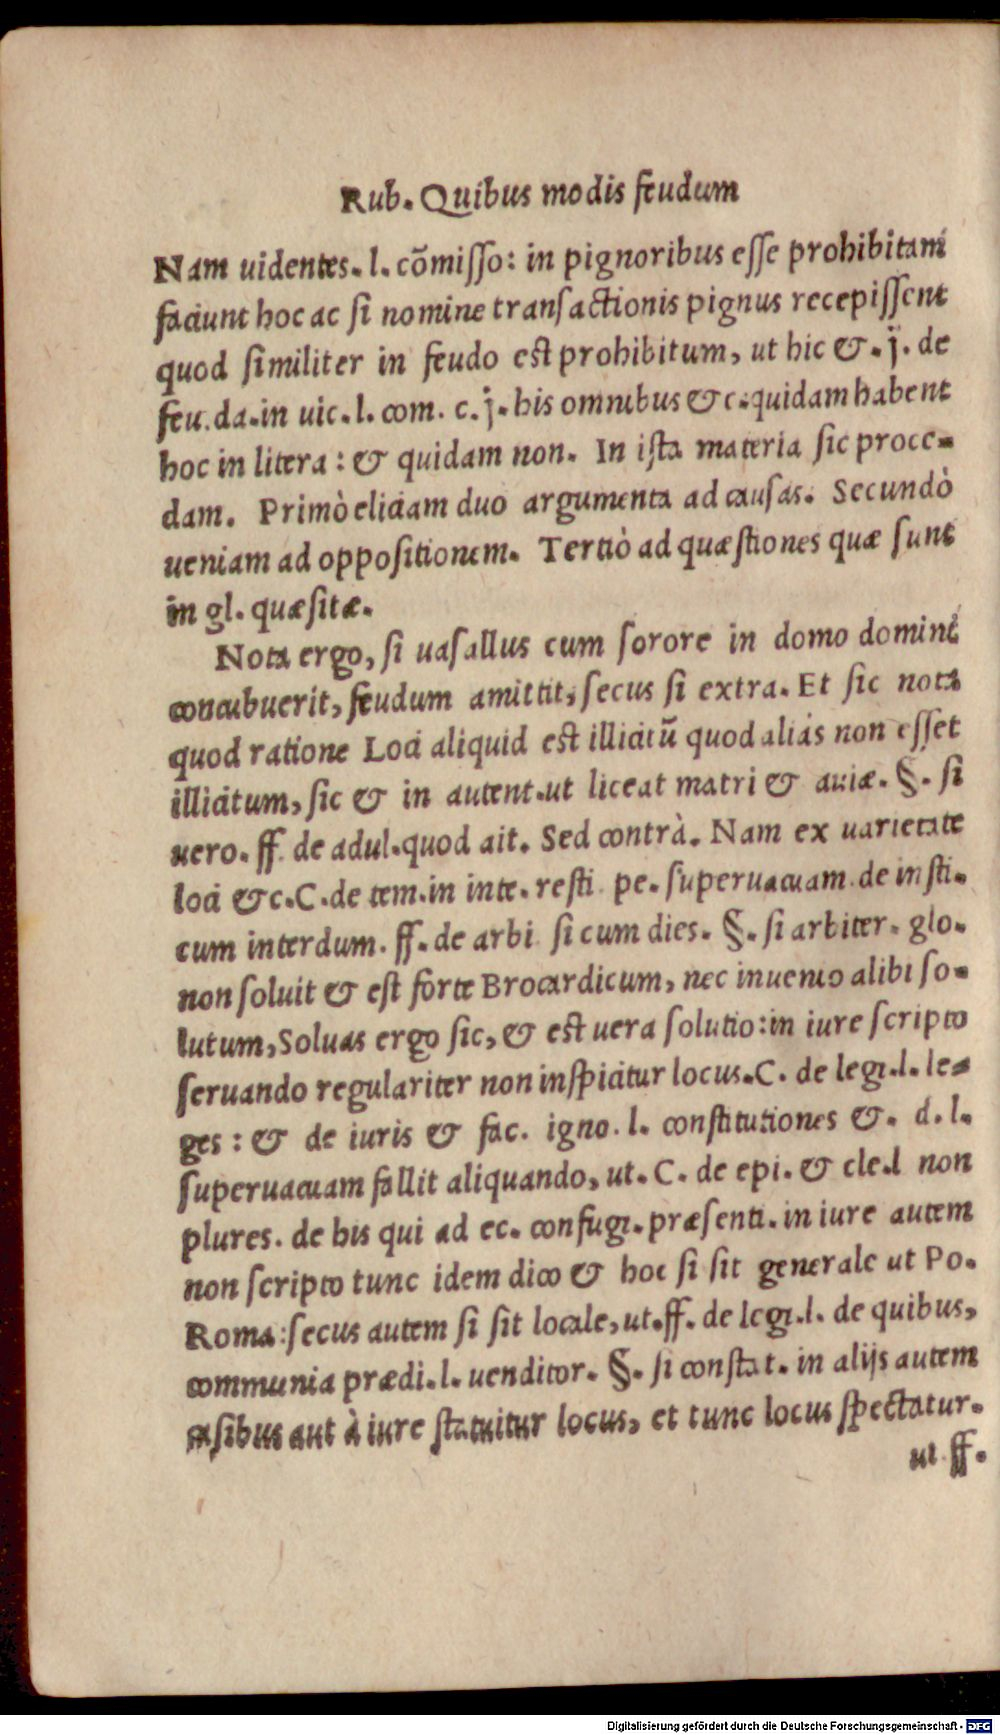 Rub. Quibus modis feudum
Nam uidentes. l. cõmisso: in pignoribus esse prohibitam
faciunt hoc ac si nomine transactionis pignus recepissent
quod similiter in feudo est prohibitum, ut hic &. j. de
feu. da. in uic. l. com. c. j. his omnibus &c. quidam habent
hoc in litera : & quidam non. In ista materia sic proce-
dam. Primò eliciam duo argumenta ad causas. Secundò
ueniam ad oppositionem. Tertiò ad quæstiones quæ sunt
in gl. quæsitæ.
Nota ergo, si uasallus cum sorore in domo domini
concubuerit, feudum amittit, secus si extra. Et sic nota
quod ratione Loci aliquid est illicitũ quod aliàs non esset
illicitum, sic & in autent. ut liceat matri & auiæ. §. si
uero. ff. de adul. quod ait. Sed contrà. Nam ex uarietate
loci &c. C. de tem. in inte. resti. pe. superuacuam. de insti.
cum interdum. ff. de arbi. si cum dies. §. si arbiter. glo.
non soluit & est forte Brocardicum, nec inuenio alibi so-
lutum, Soluas ergo sic, & est uera solutio: in iure scripto
seruando regulariter non inspicitur locus. C. de legi. l. le-
ges : & de iuris & fac. igno. l. constitutiones &. d. l.
superuacuam fallit aliquando, ut. C. de epi. & cle. l non
plures. de his qui ad ec. confugi. præsenti. in iure autem
non scripto tunc idem dico & hoc si sit generale ut Po.
Roma: secus autem si sit locale, ut. ff. de legi. l. de quibus,
communia prædi. l. uenditor. §. si constat. in alijs autem
casibus aut à iure statuitur locus, et tunc locus spectatur.
ut ff.
Digitalisierung gefördert durch die Deutsche Forschungsgemeinschaft - DFG